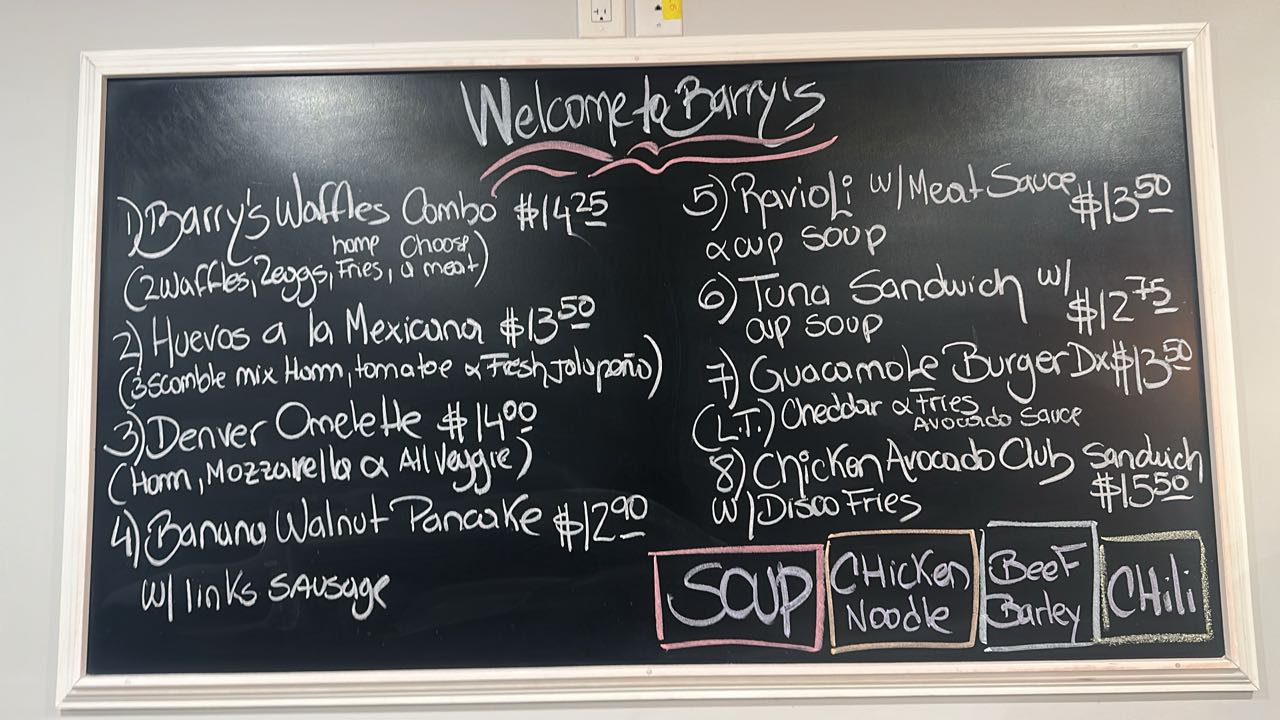 Welcome to Barry's
1) Barry's Waffles Combo $14.25
(2 waffles, 2 eggs, home Fries, Choose a meat)
2) Huevos a la Mexicana $13.50
(3 scomble mix Ham, tomatoe & Fresh jalapeño)
3) Denver Omelette $14.00
(Ham, Mozzarella & All Veggie)
4) Banana Walnut Pancake $12.90
w/ links sausage
5) Ravioli w/ Meat Sauce $13.50
& cup soup
6) Tuna Sandwich w/ $12.75
cup soup
7) Guacamole Burger Dx $13.50
(L.T.) Cheddar & Fries
Avocado Sauce
8) Chicken Avocado Club Sandwich
w/ Disco Fries $15.50
SOUP
CHicken Noodle
BeeF Barley
CHili